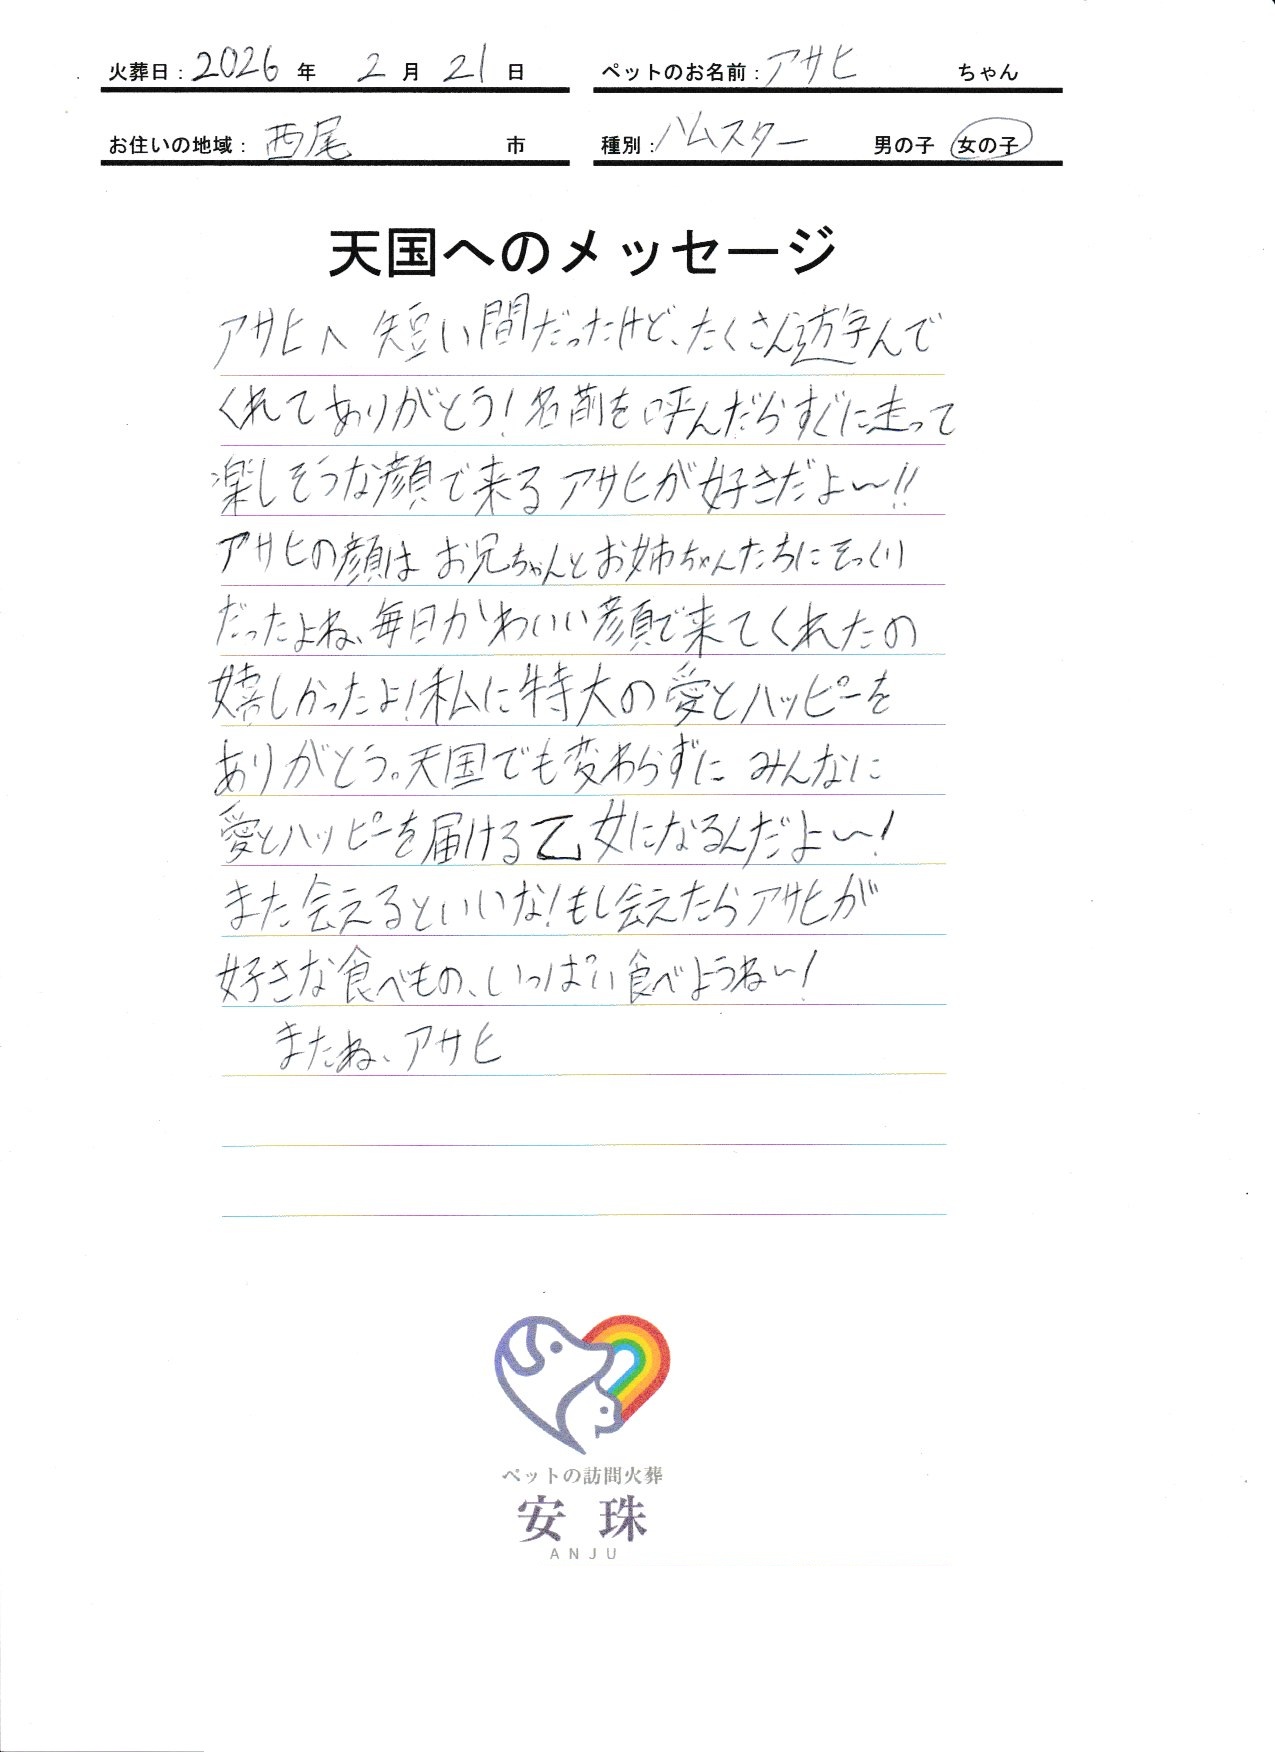 火葬日：2026 年 2 月 21 日 ペットのお名前：アサヒ ちゃん
お住いの地域：西尾 市 種別：ハムスター 男の子 女の子
天国へのメッセージ
アサヒへ 短い間だったけど、たくさん遊んで
くれてありがとう！名前を呼んだらすぐに走って
楽しそうな顔で来る アサヒが好きだよ〜!!
アサヒの顔は お兄ちゃんとお姉ちゃんたちにそっくり
だったよね、毎日かわいい顔で来てくれたの
嬉しかったよ！私に特大の愛とハッピーを
ありがとう。天国でも変わらずに みんなに
愛とハッピーを届ける乙女になるんだよ〜！
また会えるといいな！もし会えたらアサヒが
好きな食べもの、いっぱい食べようね〜！
またね、アサヒ
ペットの訪問火葬
安珠
ANJU